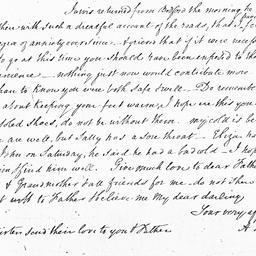 Jarvis returned from Bedford the morning he
them with such a dreadful account of the roads, that I feel
of anxiety ever since. I grieve that if it were necessary
to go at this time you should have been exposed to the
nothing just now would contribute more
than to know you were both safe & well. Do remember
about keeping your feet warm & I hope
shoes, do not be without them. my cold is be
are well, but Sally has a sore throat. Eliza
John on Saturday, he said he had a bad cold. I hope
find him well. Give much love to dear Father
& Grandmother & all friends for me. do not
to Father & believe me My dear darling
Your very
send their love to you & Father